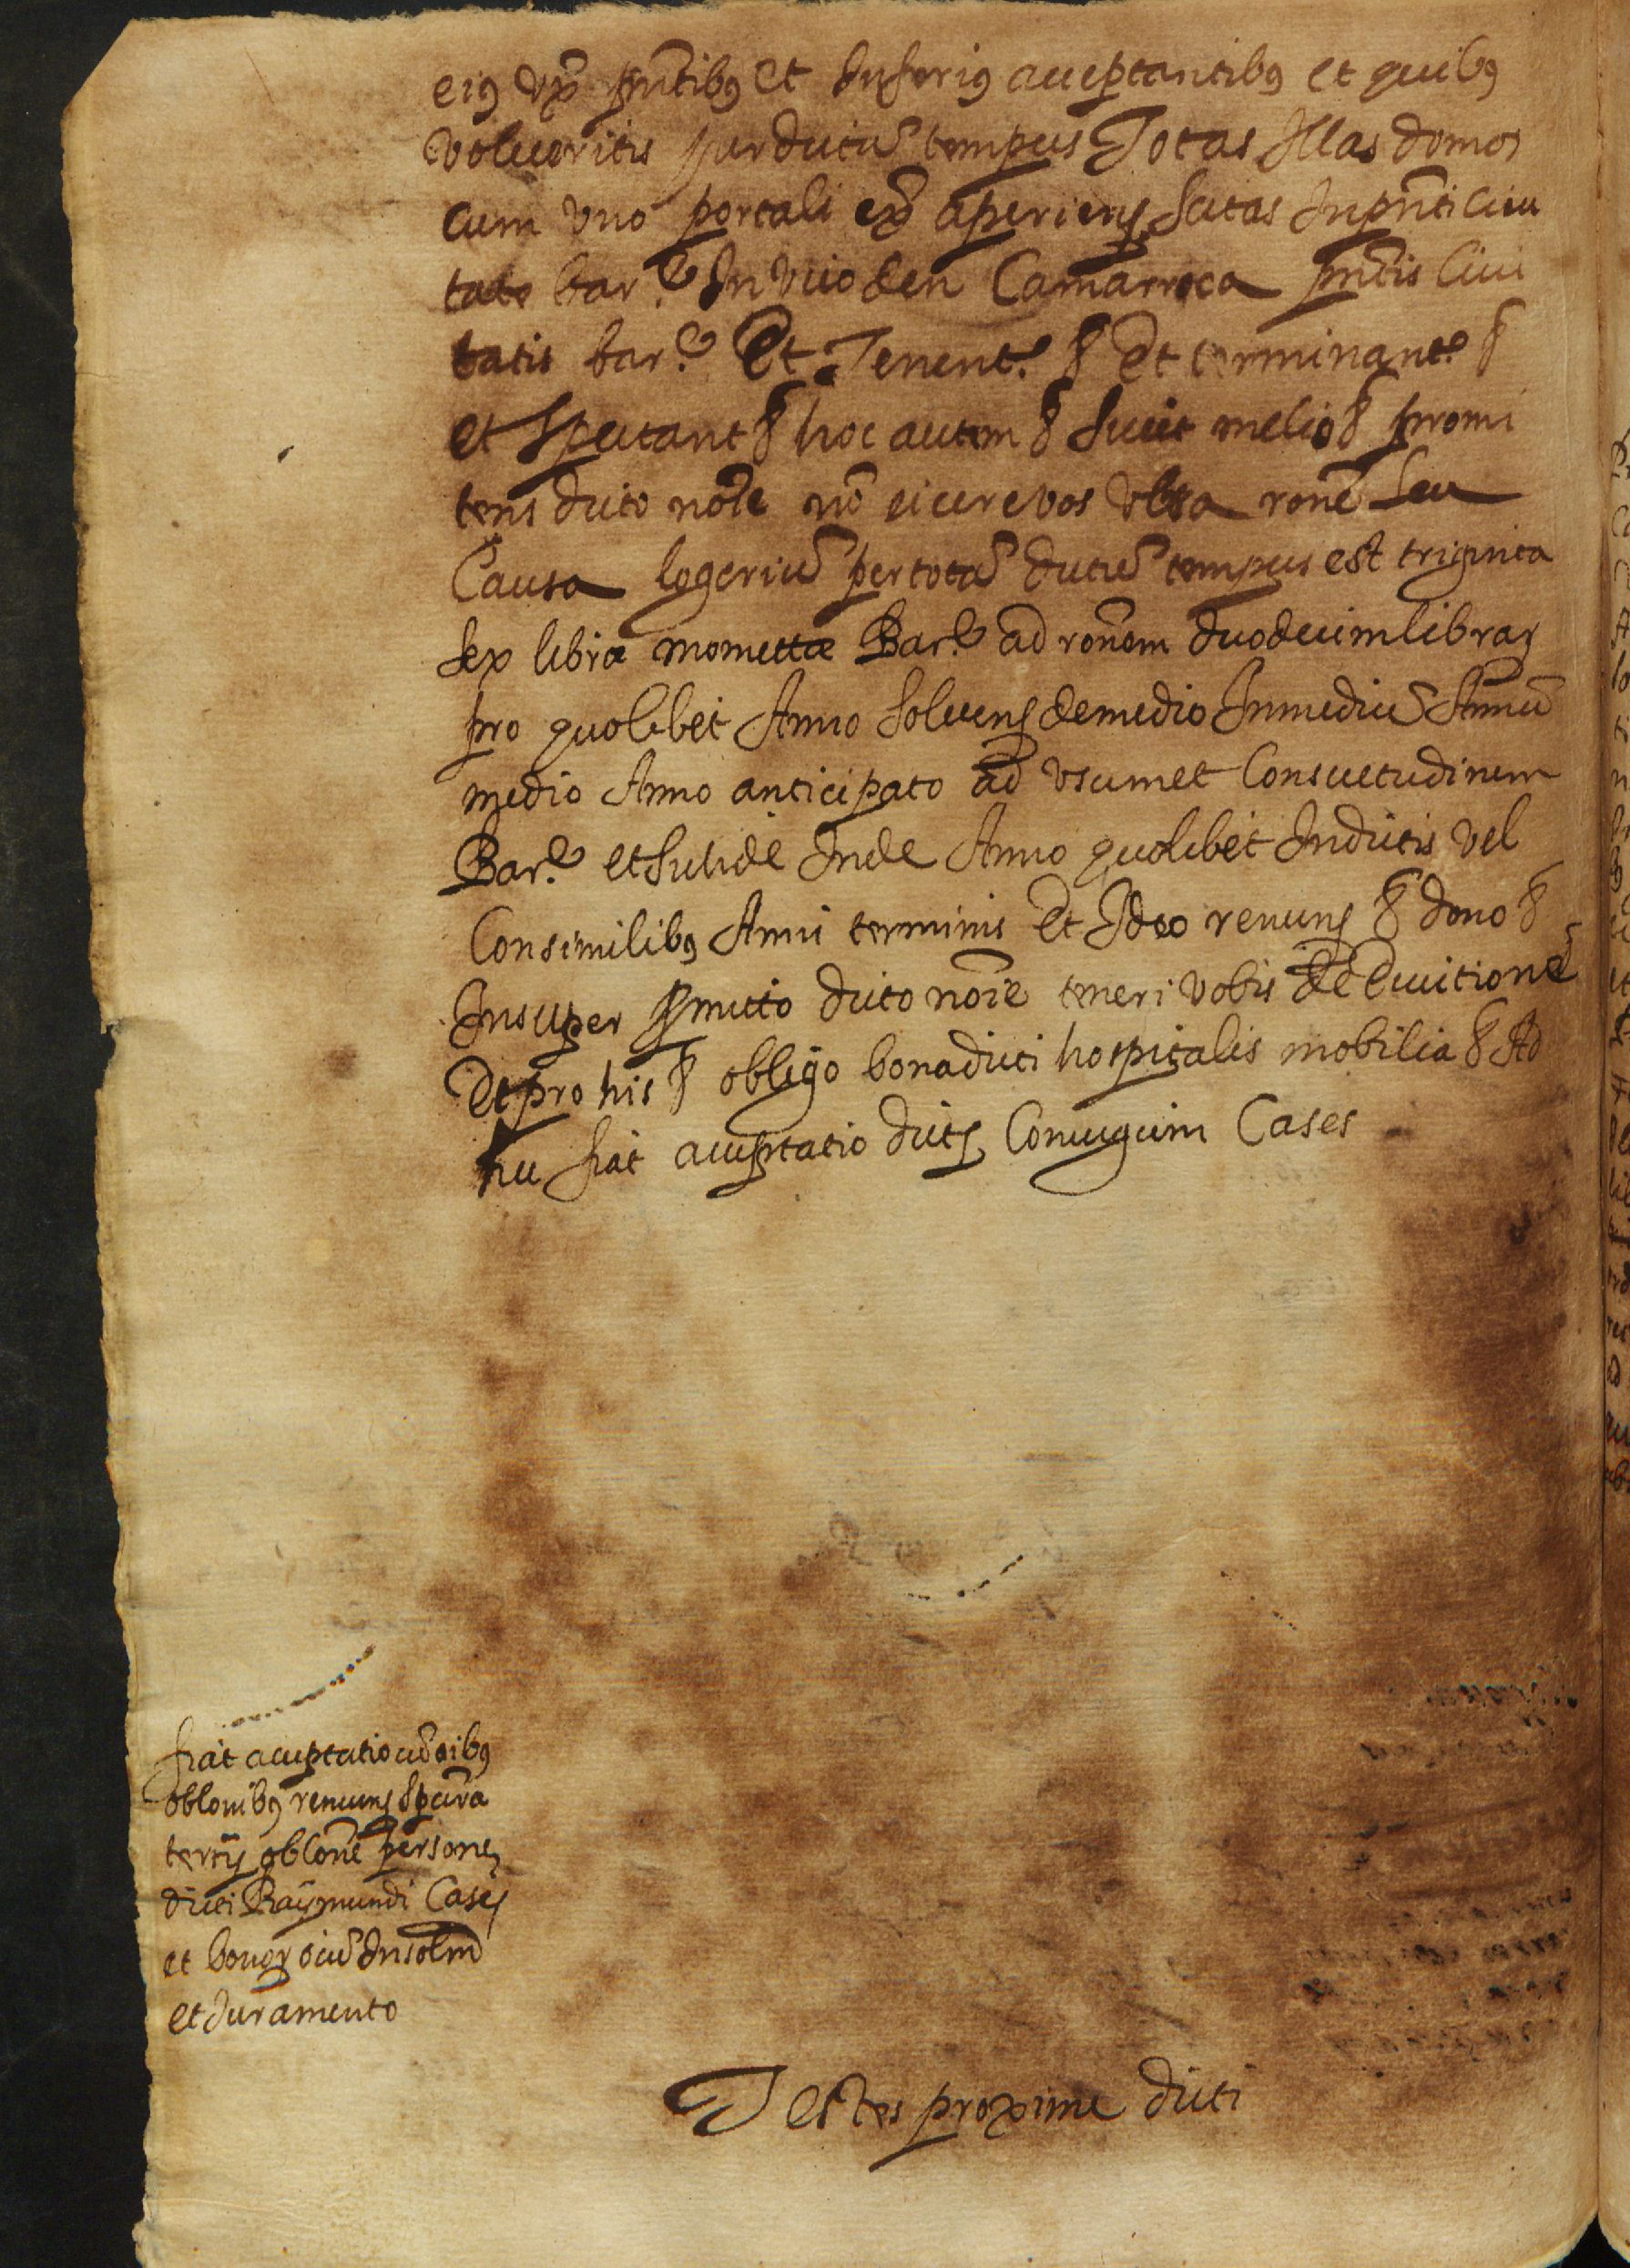 eiꝰ vx̄ pn̄tibꝰ et Inferiꝰ acceptantibꝰ et quibꝰ
volueritis per dictū tempus Totas Illas domos
cum vno portali ex̄ aperienꝭ sitas In pn̄ti ciui
tate bar.e In vico den Camarroca pn̄tis Ciui
tatis bar.e Et Tenent.e &̄ Et terminant.e &̄
et spectant &̄ hoc autem &̄ sicut melio &̄ promi
tens dicto noīe nō eicere vos vlla ronē seu
Causa logeriū per totū dictū tempus est triginta
sex libræ monettæ Bar.e ad ronem duodecim librarꝝ
pro quolibet Anno soluenꝭ de medio In mediū Annū
medio Anno anticipato ad vsum et Consuetudinem
Bar.e et sic de Inde Anno quolibet In dictis vel
Consimilibꝰ Anni terminis Et Ideo renunꝭ &̄ dono &̄
Insuper promitto dicto noīe teneri vobis de euictionē
Et pro his &̄ obligo bona dicti hospitalis mobilia &̄ Ad
hec fiat acceptatio dictꝝ Coniugum Cases
fiat acceptatio cū oibꝰ
oblonibꝰ renunꝭ
tertij oblonē personꝝ
dicti Raÿmundi Caseꝭ
et bonoꝝ eiū Insolm̄
et Juramento
Testes proxime dicti